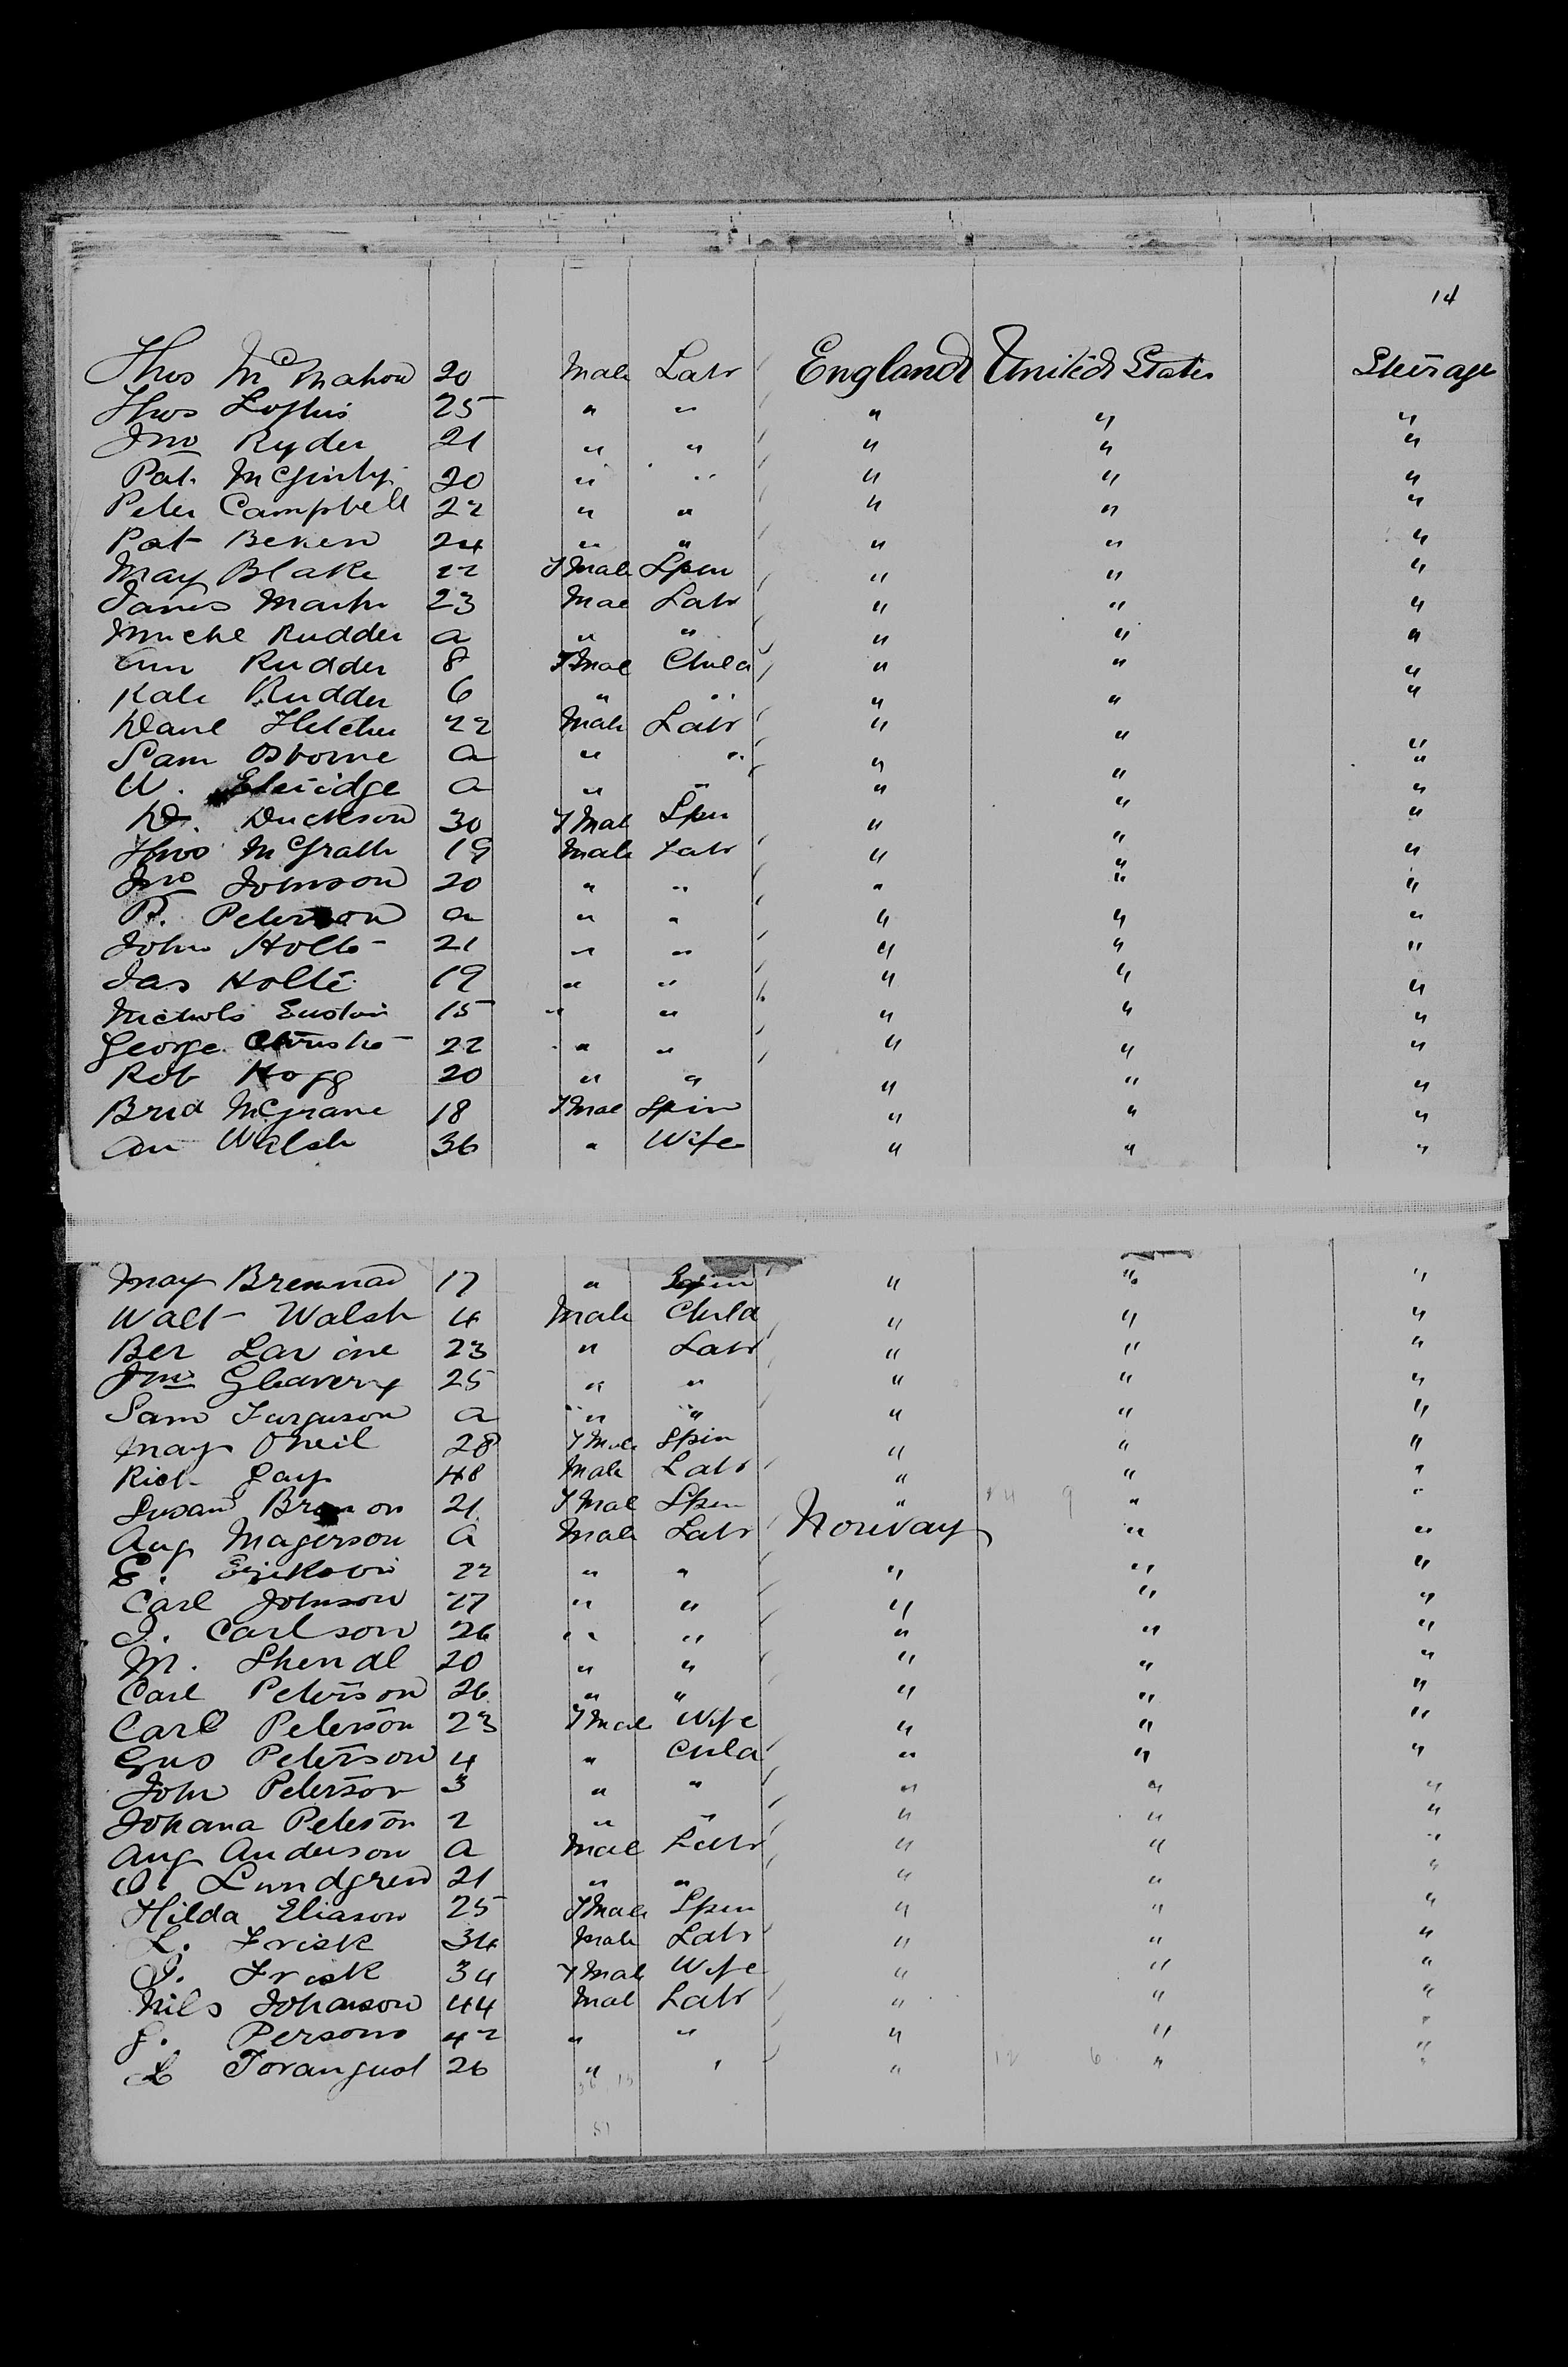 14
Thos McMahon 20 Male Labr England United States Steerage
Thos Loftus 25 " " " " "
Jno Ryder 21 " " " " "
Pat. McGinty 20 " " " " "
Peter Campbell 22 " " " " "
Pat Beken 24 " " " " "
May Blake 22 F Male Spin " " "
James Martin 23 Mal Labr " " "
Michl Rudder a " " " " "
Ann Rudder 8 F Mal Child " " "
Kate Rudder 6 " " " " "
Danl Fletcher 22 Male Labr " " "
Sam Osborne a " " " " "
W. Elridge a " " " " "
D. Duckson 30 F Mal Spin " " "
Thos McGrath 19 Male Labr " " "
Jno Johnson 20 " " " " "
P. Peterson a " " " " "
John Holte 21 " " " " "
Jas Holte 19 " " " " "
Nichols 15 " " " " "
George Christie 22 " " " " "
Rob Hogg 20 " " " " "
Brid McGrane 18 F Mal Spin " " "
Ann Walsh 36 " Wife " " "
May Brennan 17 " Spin " " "
Walt Walsh 4 Male Child " " "
Ber Lavine 23 " Labr " " "
Jno Gleavery 25 " " " " "
Sam Furguson a " " " " "
May O'Neil 28 F Male Spin " " "
Rich Gay 48 Male Labr " " "
Susan 21 F Mal Spin " " "
Aug Magerson a Male Labr Norway " "
E. Erikson 22 " " " " "
Carl Johnson 27 " " " " "
J. Carlson 26 " " " " "
M. Shendl 20 " " " " "
Carl Peterson 26 " " " " "
Carl Peterson 23 F Mal Wife " " "
Gus Peterson 4 " Child " " "
John Peterson 3 " " " " "
Johana Peterson 2 " " " " "
Aug Anderson a Mal Labr " " "
O. Lundgren 21 " " " " "
Hilda Eliason 25 F Male Spin " " "
L. Frisk 34 Male Labr " " "
J. Frisk 34 F Male Wife " " "
Nils Johanson 44 Mal Labr " " "
J. Persons 42 " " " " "
L Torangust 26 " " " 12 6 " "
51